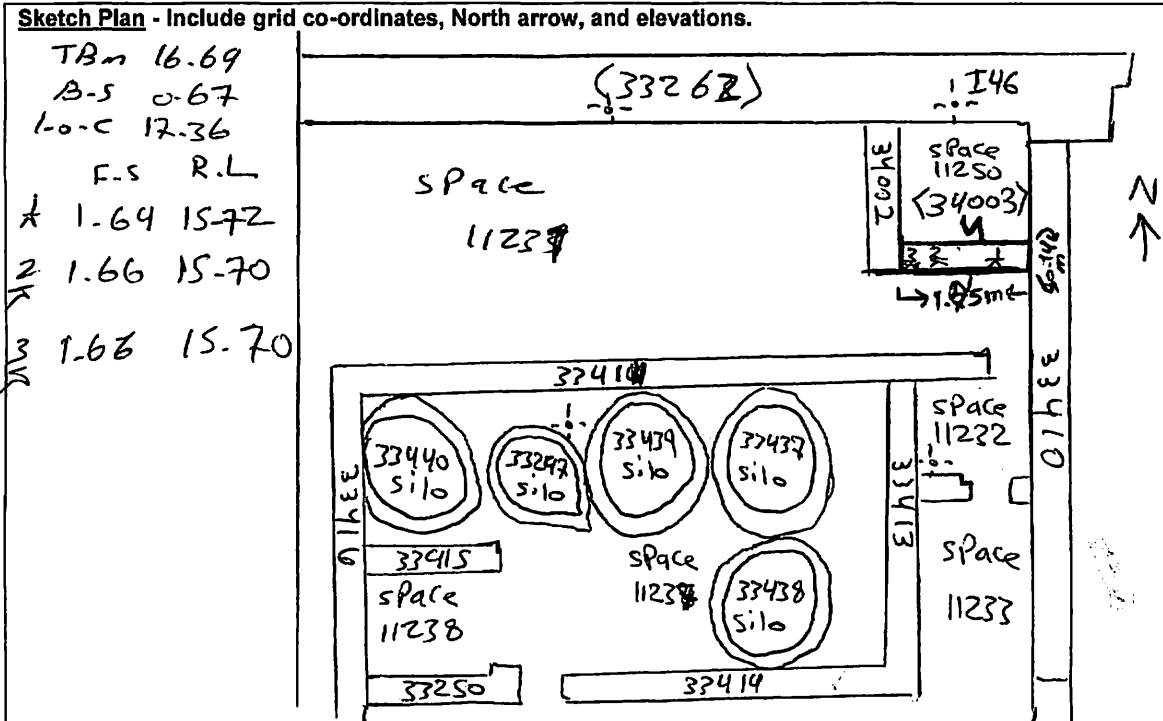 Sketch Plan - Include grid co-ordinates, North arrow, and elevations.
TBm 16.69
B-S 0.67
I-o-C 17.36
F.S R.L
1 1.64 15-72
2 1.66 15-70
3 1.66 15.70
(33262)
I46
space
34002
space
11250
<34003>
N
3 2 1
1.25m
33410
space
11232
33440
silo
33297
silo
33439
silo
33437
silo
33413
33416
33415
space
space
11238
33438
silo
space
11233
33250
33414